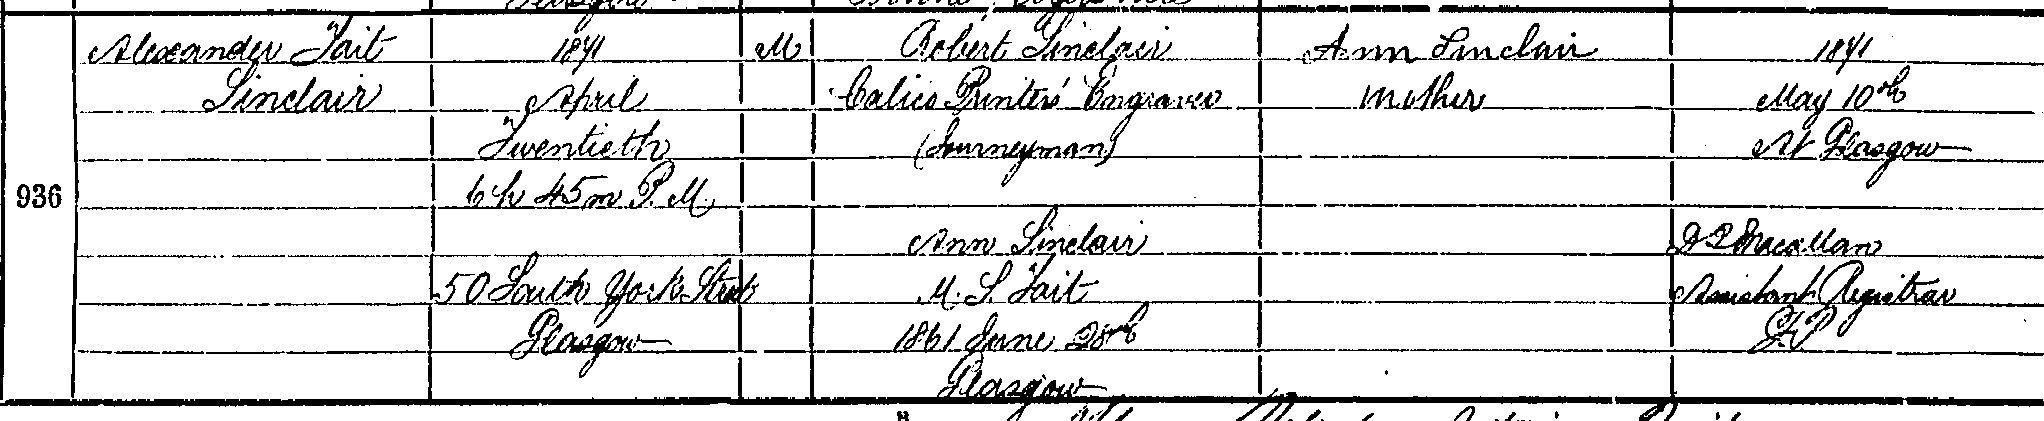 936
Alexander Tait
Sinclair
1871
April
Twentieth
6 h 45 m P. M.
50 South York Street
Glasgow
M
Robert Sinclair
Calico Printers' Engraver
(Journeyman)
Ann Sinclair
M. S. Tait
1861 June 28th
Glasgow
Ann Sinclair
Mother
1871
May 10th
At Glasgow
Macallan
Assistant Registrar